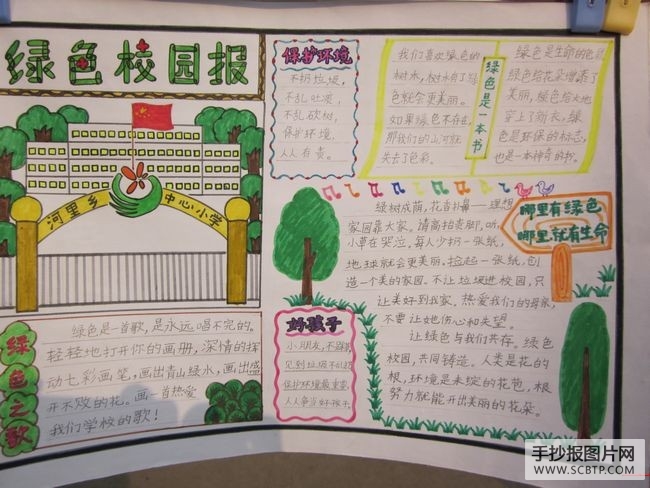 绿色校园报
河里乡
中心小学
绿色之歌
绿色是一首歌，是永远唱不完的。
轻轻地打开你的画册，深情的挥
动七彩画笔，画出青山绿水，画出盛
开不败的花。画一首热爱
我们学校的歌！
保护环境
不扔垃圾，
不乱吐痰，
不乱砍树，
保护环境，
人人有责。
绿色是一本书
我们喜欢绿色的
树木，树木有了绿
色就会更美丽。
如果绿色不存在，
那我们的山河就
失去了色彩。
绿色是生命的色
绿色给花朵增添了
美丽，绿色给大地
穿上了新衣，绿
色是环保的标志，
也是一本神奇的书。
哪里有绿色
哪里就有生命
绿树成荫，花香扑鼻——理想
家园靠大家。请高抬贵脚，听，
小草在哭泣，每人少扔一张纸，
地球就会更美丽。捡起一张纸，创
造一个美的家园。不让垃圾进校园，只
让美好到我家。热爱我们的母亲，
不要让她伤心和失望。
让绿色与我们共存。绿色
校园，共同铸造。人类是花的
根，环境是未绽的花苞，根
努力就能开出美丽的花朵。
好孩子
小朋友，不
见到垃圾不
保护环境最重要，
人人争当好孩子。
手抄报图片网
WWW.SCBTP.COM